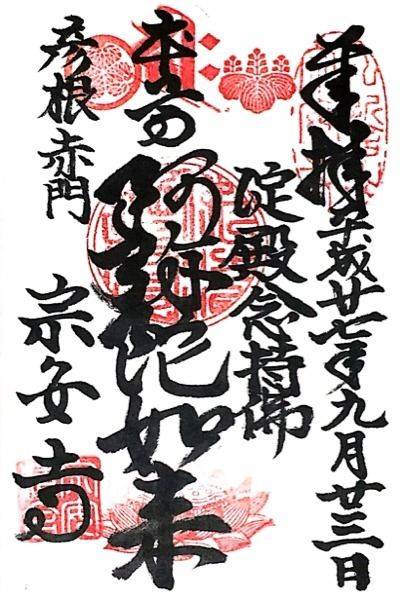 奉拝 平成廿七年九月廿三日
淀殿念持佛
本尊 阿弥陀如来
彦根赤門
宗安寺